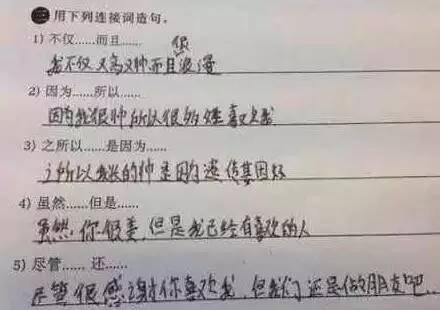 三 用下列连接词造句。
1) 不仅……而且……
我不仅又高又帅而且很浪漫
2) 因为……所以……
因为我很帅所以很多女生喜欢我
3) 之所以……是因为……
之所以我长的帅是因为遗传基因好
4) 虽然……但是……
虽然你很美,但是我已经有喜欢的人
5) 尽管…… 还……
尽管很感谢你喜欢我,但我们还是做朋友吧...